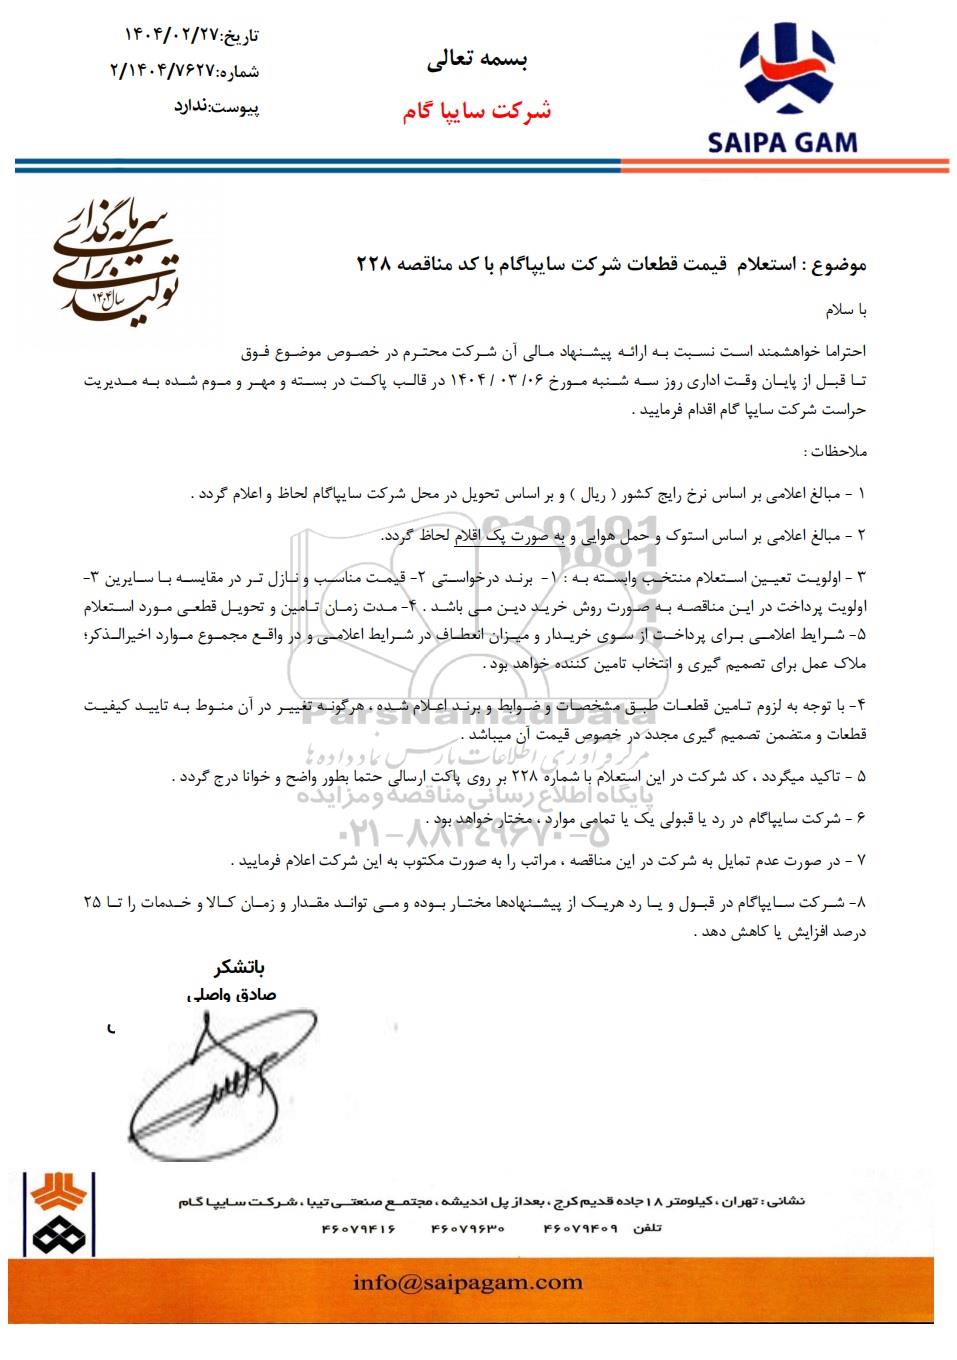 تاریخ:۱۴۰۴/۰۲/۲۷
شماره:۲/۱۴۰۴/۷۶۲۷
پیوست:ندارد
بسمه تعالی
شرکت سایپا گام
SAIPA GAM
سرمایه‌گذاری
برای
تولید
سال ۱۴۰۴
موضوع : استعلام قیمت قطعات شرکت سایپاگام با کد مناقصه ۲۲۸
با سلام
احتراما خواهشمند است نسبت به ارائه پیشنهاد مالی آن شرکت محترم در خصوص موضوع فوق
تا قبل از پایان وقت اداری روز سه شنبه مورخ ۰۶/ ۰۳ / ۱۴۰۴ در قالب پاکت در بسته و مهر و موم شده به مدیریت
حراست شرکت سایپا گام اقدام فرمایید .
ملاحظات :
۱ - مبالغ اعلامی بر اساس نرخ رایج کشور ( ریال ) و بر اساس تحویل در محل شرکت سایپاگام لحاظ و اعلام گردد .
۲ - مبالغ اعلامی بر اساس استوک و حمل هوایی و به صورت پک اقلام لحاظ گردد.
۳ - اولویت تعیین استعلام منتخب وابسته به : ۱- برند درخواستی ۲- قیمت مناسب و نازل تر در مقایسه با سایرین ۳-
اولویت پرداخت در این مناقصه به صورت روش خرید دین می باشد . ۴- مدت زمان تامین و تحویل قطعی مورد استعلام
۵- شرایط اعلامی برای پرداخت از سوی خریدار و میزان انعطاف در شرایط اعلامی و در واقع مجموع موارد اخیرالذکر؛
ملاک عمل برای تصمیم گیری و انتخاب تامین کننده خواهد بود .
۴- با توجه به لزوم تامین قطعات طبق مشخصات و ضوابط و برند اعلام شده ، هرگونه تغییر در آن منوط به تایید کیفیت
قطعات و متضمن تصمیم گیری مجدد در خصوص قیمت آن میباشد .
۵ - تاکید میگردد ، کد شرکت در این استعلام با شماره ۲۲۸ بر روی پاکت ارسالی حتما بطور واضح و خوانا درج گردد .
۶ - شرکت سایپاگام در رد یا قبولی یک یا تمامی موارد ، مختار خواهد بود .
۷ - در صورت عدم تمایل به شرکت در این مناقصه ، مراتب را به صورت مکتوب به این شرکت اعلام فرمایید .
۸- شرکت سایپاگام در قبول و یا رد هریک از پیشنهادها مختار بوده و می تواند مقدار و زمان کالا و خدمات را تا ۲۵
درصد افزایش یا کاهش دهد .
ParsNamadData
مرکز فرآوری اطلاعات پارس نماد داده ها
پایگاه اطلاع رسانی مناقصه و مزایده
۰۲۱-۸۸۳۴۹۶۷۰-۵
باتشکر
صادق واصلی
نشانی : تهران ، کیلومتر ۱۸جاده قدیم کرج ، بعداز پل اندیشه ، مجتمع صنعتی تیبا ، شرکت سایپا گام
تلفن ۴۶۰۷۹۴۰۹ ۴۶۰۷۹۶۳۰ ۴۶۰۷۹۴۱۶
info@saipagam.com